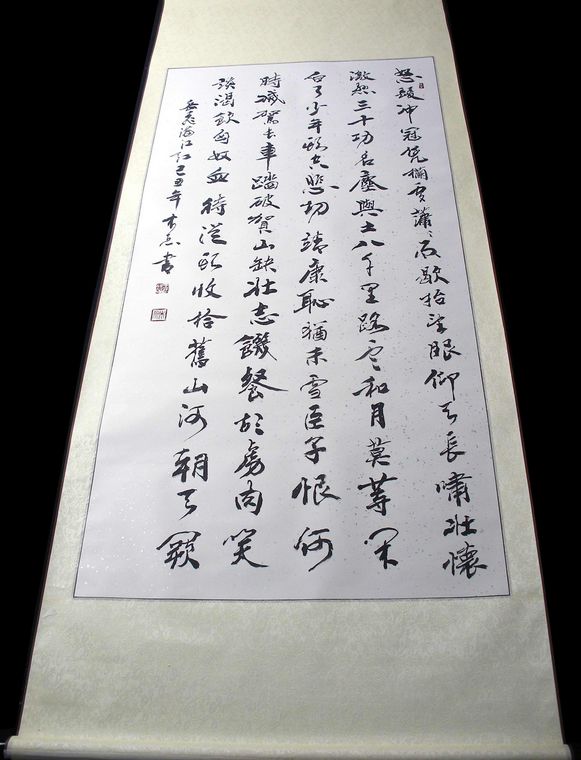 怒髮冲冠凭欄處瀟々雨歇抬望眼仰天長嘯壯懷
激烈三十功名塵與土八千里路雲和月莫等閑
白了少年頭空悲切靖康恥猶未雪臣子恨何
時滅駕長車踏破賀山缺壯志饑餐胡虜肉笑
談渴飲匈奴血待從頭收拾舊山河朝天闕
岳飛滿江紅己丑年書